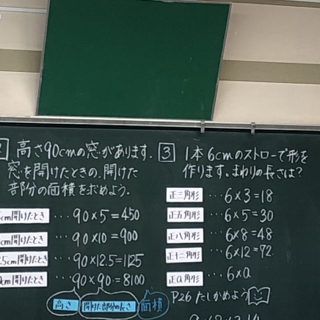 高さ90cmの窓があります.
窓を開けたときの.開けた
部分の面積を求めよう.
cm開けたとき ･･･ 90×5=450
cm開けたとき ･･･ 90×10=900
.5cm開けたとき ･･･ 90×12.5=1125
cm開けたとき ･･･ 90×90=8100
高さ 開けた部分の長さ 面積
3 1本6cmのストローで形を
作ります.まわりの長さは?
正三角形 ･･･ 6×3=18
正五角形 ･･･ 6×5=30
正八角形 ･･･ 6×8=48
正十二角形 ･･･ 6×12=72
正a角形 ･･･ 6×a
P26 たしかめよう